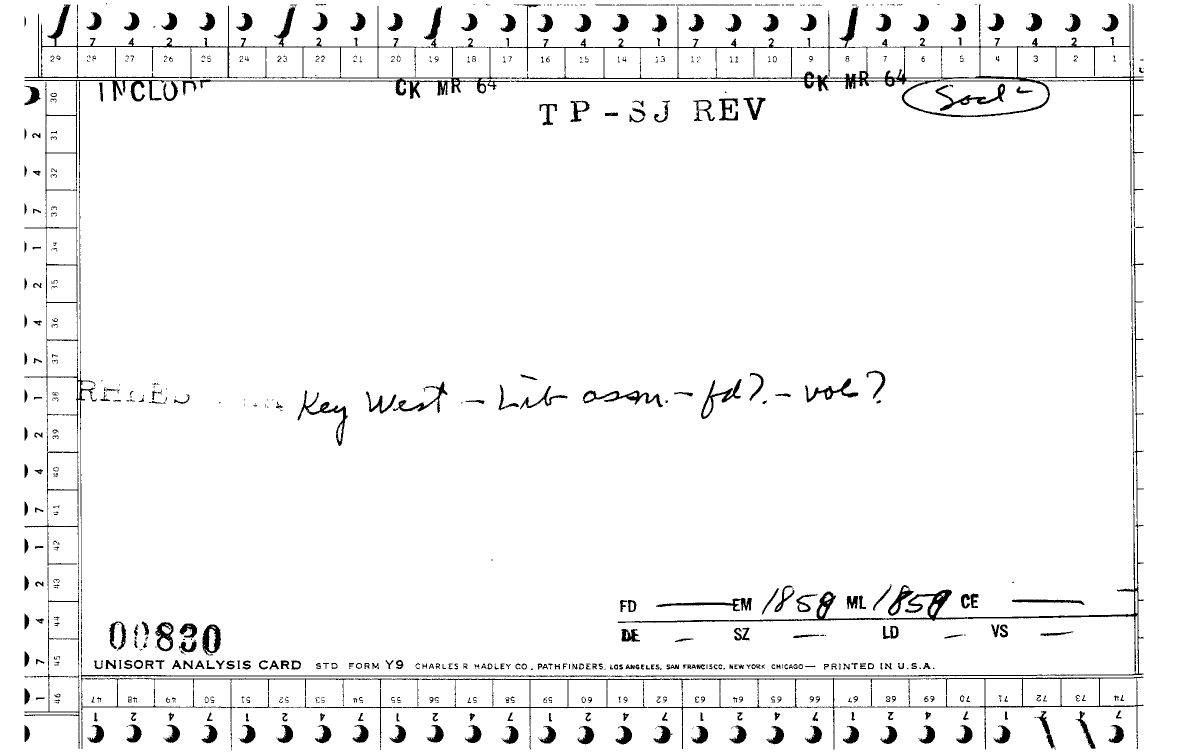 7 4 2 1 7 4 2 1 7 4 2 1 7 4 2 1 7 4 2 1 7 4 2 1 7 4 2 1
29 28 27 26 25 24 23 22 21 20 19 18 17 16 15 14 13 12 11 10 9 8 7 6 5 4 3 2 1
CK MR 64 CK MR 64
TP-SJ REV
30
2 31
4 32
7 33
1 34
2 35
4 36
7 37
1 38
Key West - Lib assn. - fd? - vols?
2 39
4 40
7 41
1 42
2 43
4 44
7 45
1 46
FD — EM 1859 ML 1859 CE —
DE — SZ — LD — VS —
00830
UNISORT ANALYSIS CARD STD FORM Y9 CHARLES R HADLEY CO., PATHFINDERS, LOS ANGELES, SAN FRANCISCO, NEW YORK CHICAGO — PRINTED IN U.S.A.
47 48 49 50 51 52 53 54 55 56 57 58 59 60 61 62 63 64 65 66 67 68 69 70 71 72 73 74
1 2 4 7 1 2 4 7 1 2 4 7 1 2 4 7 1 2 4 7 1 2 4 7 1 2 4 7